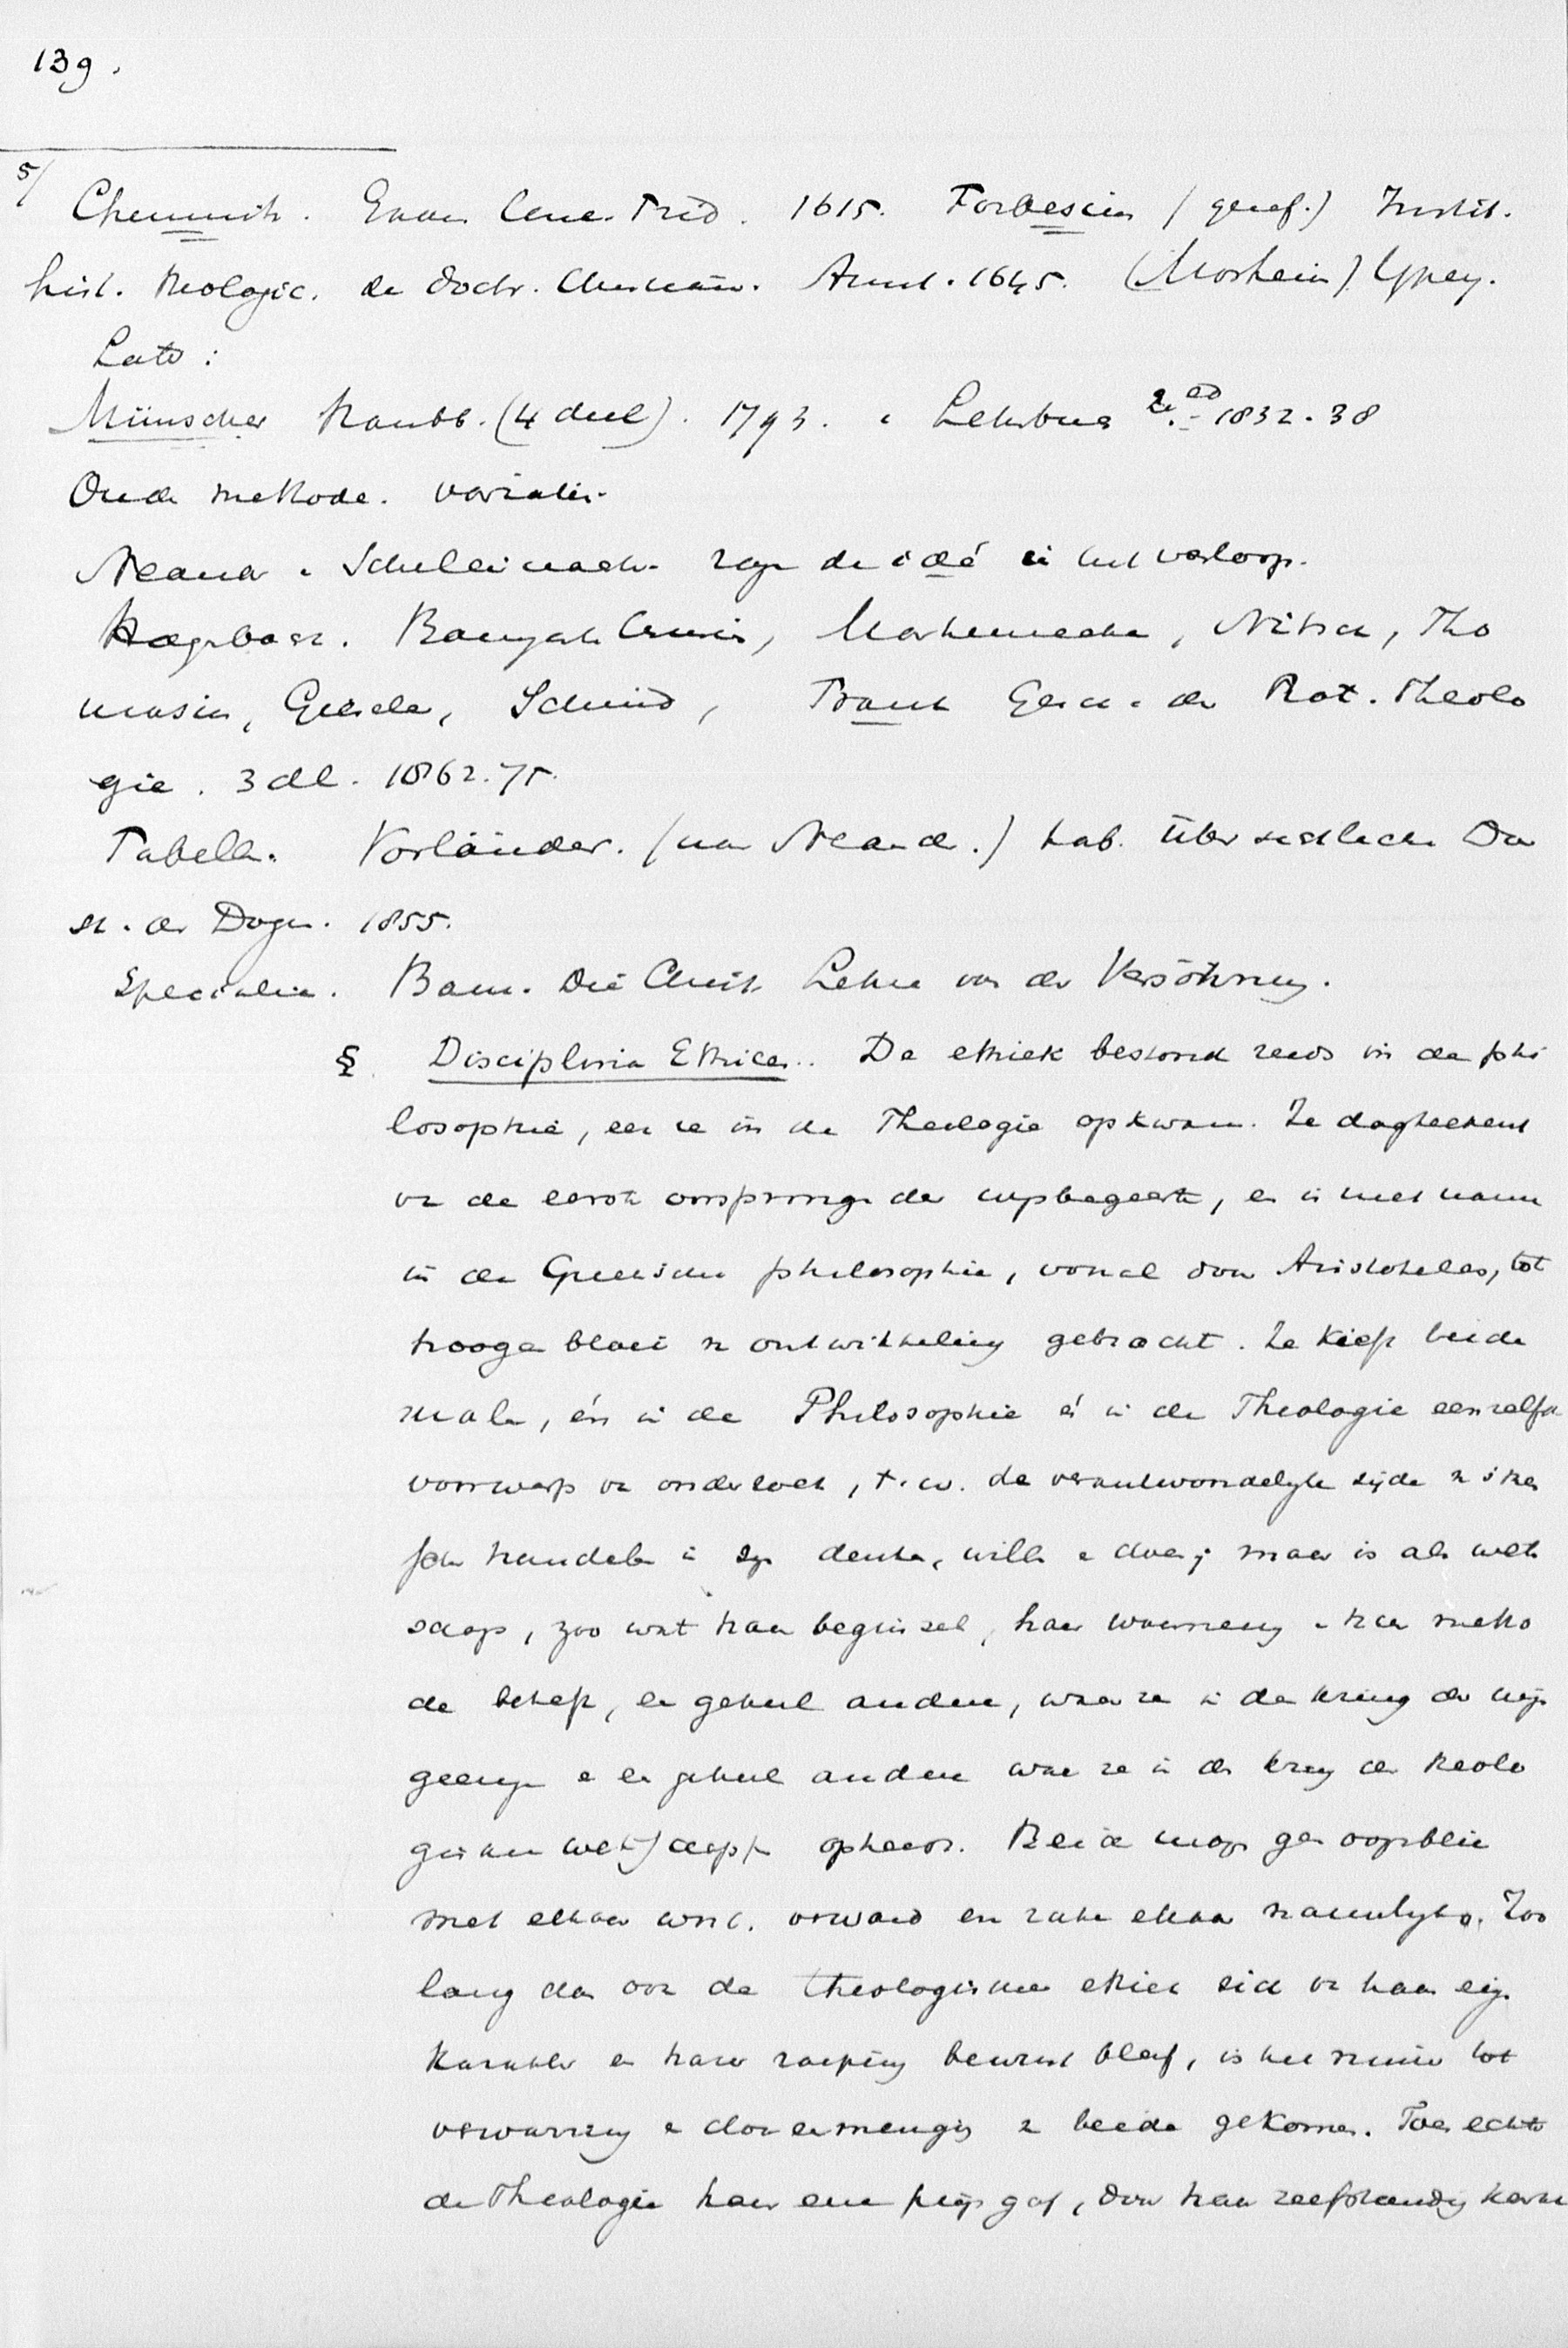 139.
5/
Chemnitz. Exam Conc. Trid. 1615. Forbesius (gref.) Instit.
hist. theologic. de doctr. Christian. Amst. 1645. (Mosheim) Ypey.
Later:
Münscher Handb. (4 deel). 1793. Lehrbuch 2e ed 1832-38
Oude methode.
Neander Schleiermacher de idé in het verloop.
Hagenbach. Baumgarten Crusius, Marheinecke, Nitzsch, Tho
masius, Gieseler, Schmid, Frank Gesch. der Prot. Theolo
gie. 3 dl. 1862.75.
Tabell. Vorländer. (naar Neander.) tab. übersichtliche Dar
st. der Dogm. 1855.
Specialia. Baur. Die Christ. Lehre von der Versöhnung.
§ Disciplina Ethices.. De ethiek bestond reeds in de phi
losophie, eer ze in de Theologie opkwam. Ze dagteekent
van de eerste oorsprongen der wijsbegeerte, en is met name
in de Grieksche philosophie, vooral door Aristoteles, tot
hooge bloei en ontwikkeling gebracht. Ze heeft beide
malen, én in de Philosophie én in de Theologie eenzelfde
voorwerp van onderzoek, t.w. de verantwoordelijke zijde
handelen in zijn denken, willen en doen; maar is als weten
schap, zoo wat haar beginsel, haar en haar metho
de betreft, een geheel andere, waar ze in de kring der wijs
geerige en een geheel andere waar ze in de kring der theolo
gische wetschapp optreedt. Beide mogen geen oogenblik
met elkaar worden verward en raken elkaar nauwelijks. Zoo
lang dan ook de theologische ethiek zich van haar eigen
karakter en haar roeping bewust bleef, is het nimmer tot
verwarring en dooreenmenging van beide gekomen. Toen echter
de Theologie haar eere prijs gaf, door haar zelfstandig karak